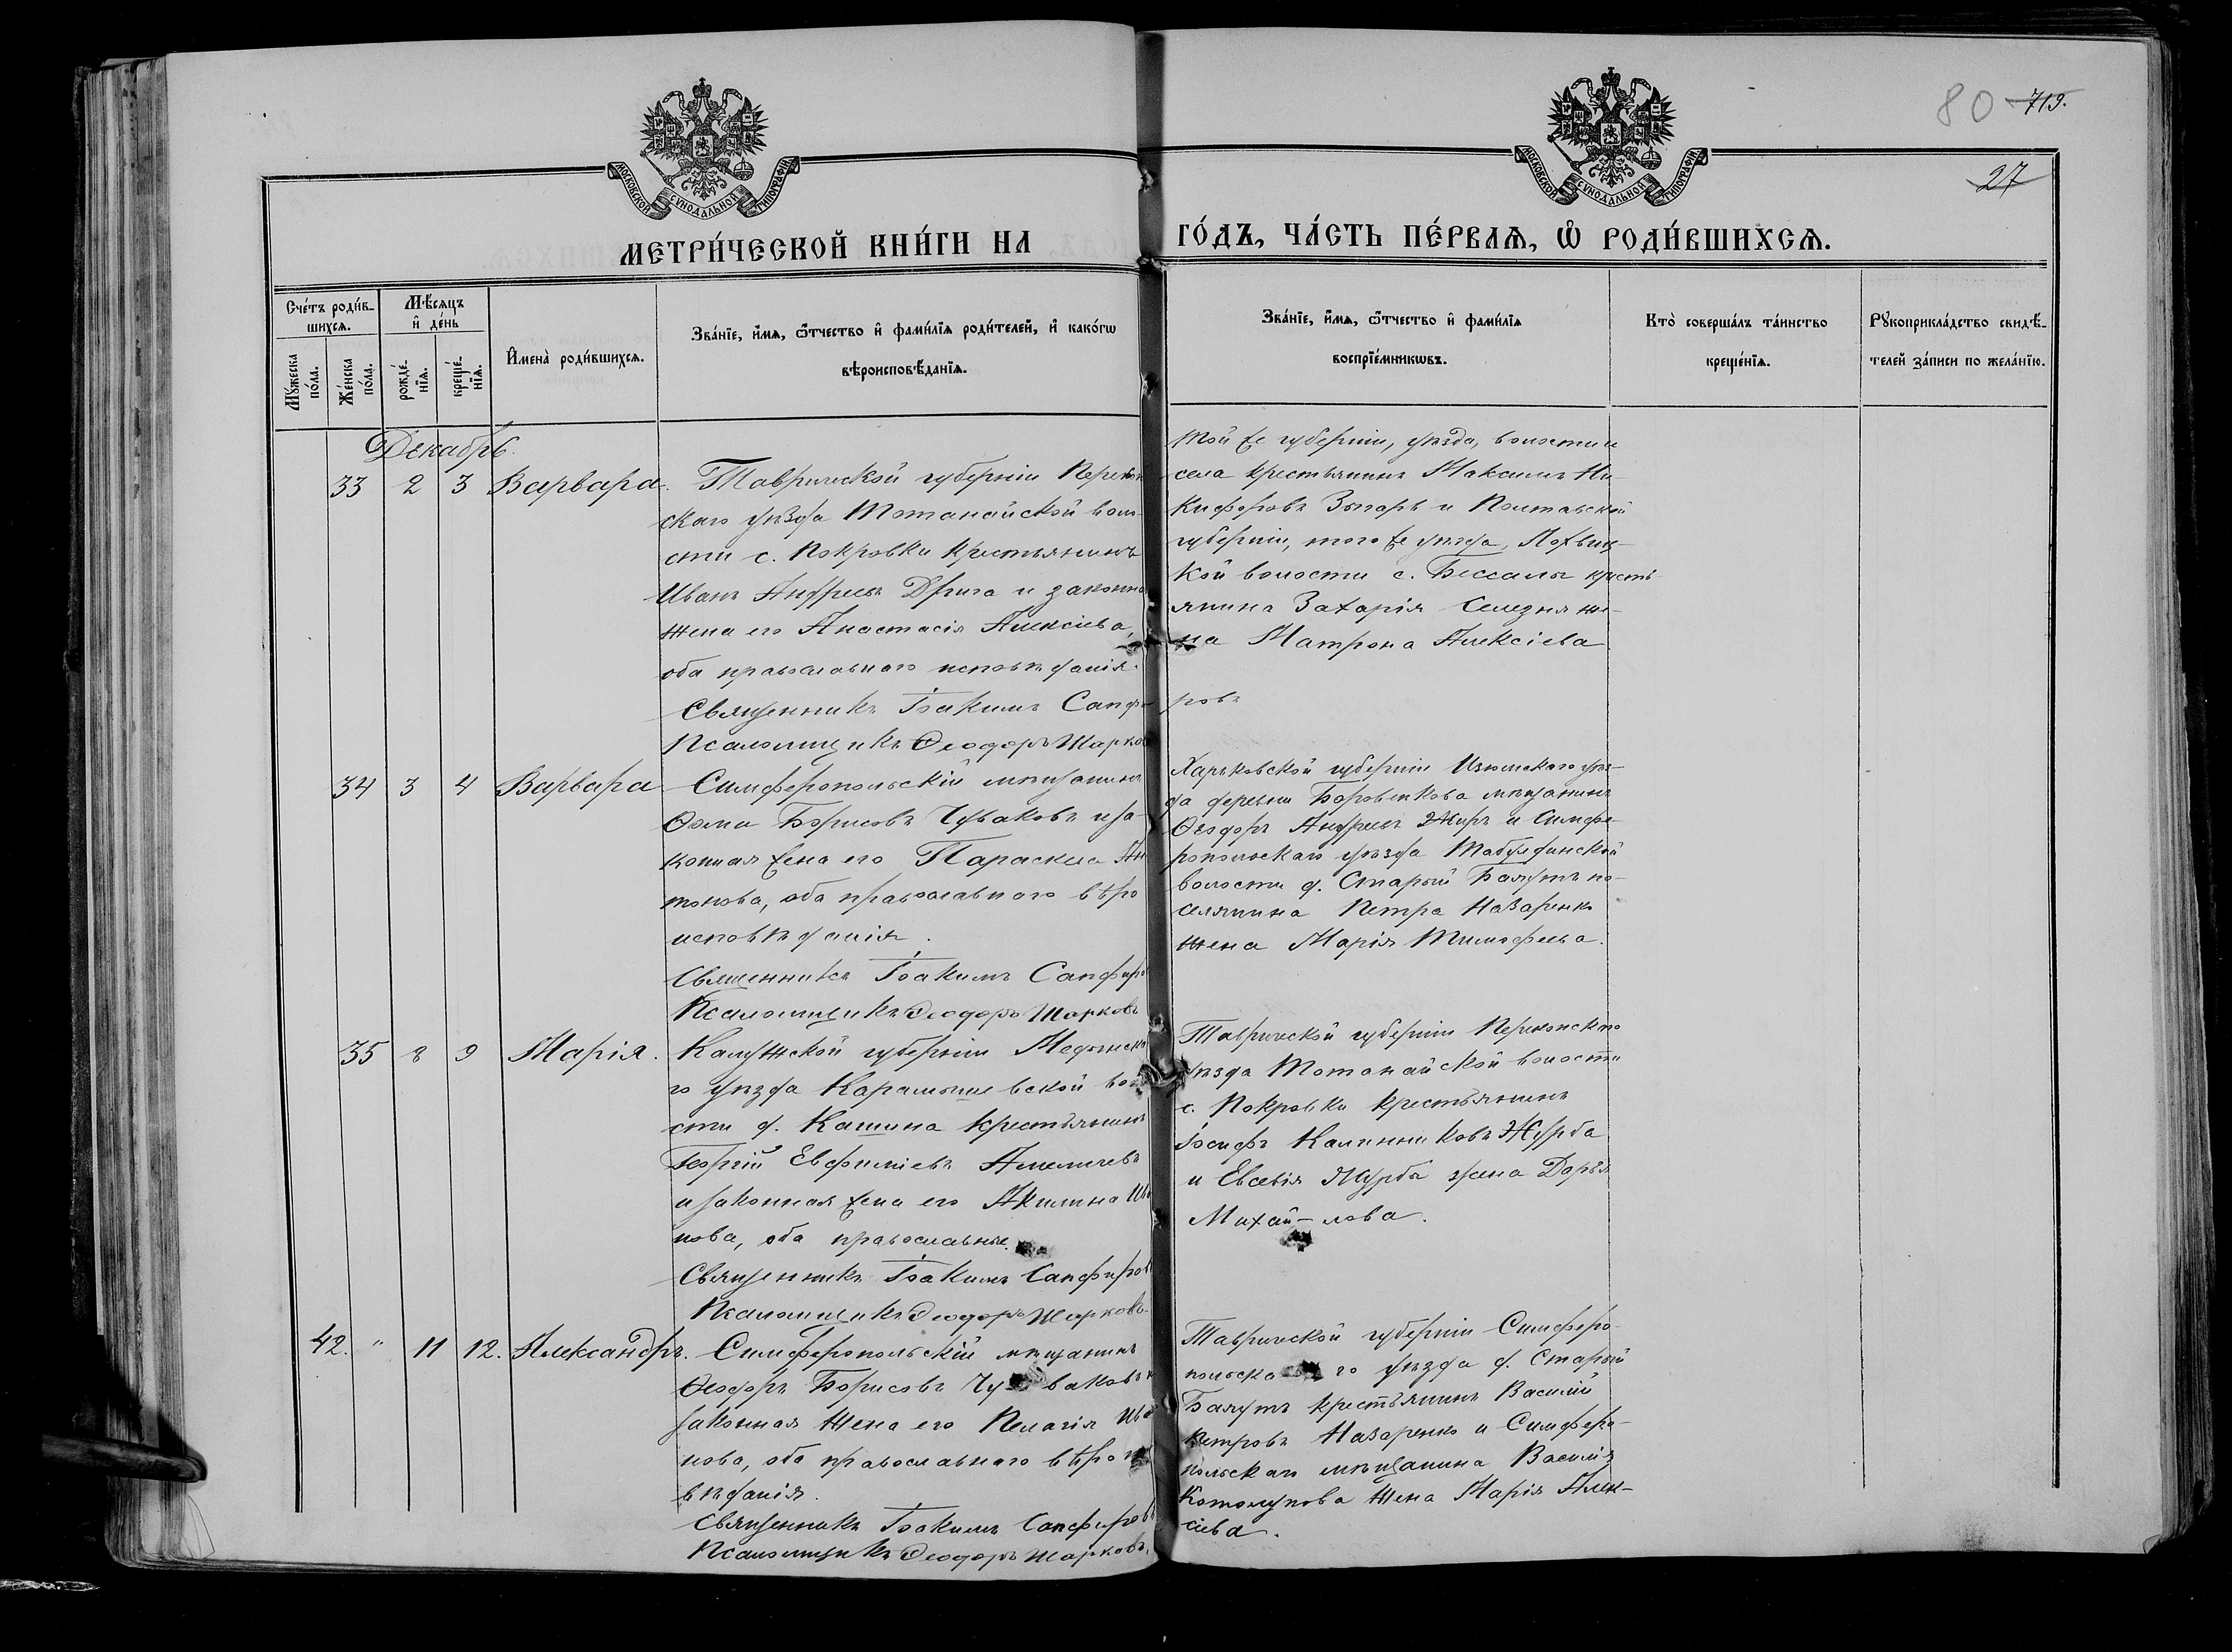 80 719.
27
МОСКОВСКОЙ СѴНОДАЛЬНОЙ ТИПОГРАФІИ.
МОСКОВСКОЙ СѴНОДАЛЬНОЙ ТИПОГРАФІИ.
МЕТРИ́ЧЕСКОЙ КНИ́ГИ НА ГО́ДЪ, ЧА́СТЬ ПЕ́РВАѦ, Ѡ҆ РОДИ́ВШИХСѦ.
Сче́тъ роди́в-
шихсѧ.
Мꙋ́жеска по́ла.
Же́нска по́ла.
Мѣ́сѧцъ
и҆ де́нь
рожде́-
нїѧ.
креще́-
нїѧ.
И҆мена̀ роди́вшихсѧ.
Зва́нїе, и҆́мѧ, ѻ҆́тчество и҆ фами́лїѧ роди́телей, и҆ како́гѡ
вѣроисповѣ́данїѧ.
Зва́нїе, и҆́мѧ, ѻ҆́тчество и҆ фами́лїѧ
воспрїе́мникѡвъ.
Кто̀ соверша́лъ та́инство
креще́нїѧ.
Рꙋкоприкла́дство свидѣ́-
телей за́писи по жела́нїю.
Декабрь.
33 2 3 Варвара.
Таврической губерніи Перекоп
скаго уѣзда Тотанайской воло-
сти с. Покровки крестьянинъ
Иванъ Андреевъ Дрига и законна
жена его Анастасія Алексіева,
оба православнаго исповѣданія.
Священникъ Іоакимъ Сапфи-ровъ
Псаломщикъ Ѳеодоръ Шарков
той же губерніи, уѣзда, волости и
села крестьянинъ Максимъ Ни-
кифоровъ и Полтавской
губерніи, того же уѣзда,
кой волости с. кресть-
янина Захарія Селезня же-
на Матрона Алексіева
34 3 4 Варвара
Симферопольскій мѣщанинъ
Ѳома Борисовъ Чуваковъ и за-
конная жена его Параскева Ан
тонова, оба православнаго вѣро
исповѣданія.
Священникъ Іоакимъ Сапфиро
Псаломщикъ Ѳеодоръ Шарковъ
Харьковской губерніи Изюмскаго уѣз-
да деревни Боровенкова мѣщанинъ
Ѳеодоръ Андреевъ Жиръ и Симфе-
ропольскаго уѣзда Табулдинской
волости д. Старый Баяутъ по-
селянина Петра Назаренко
жена Марія Тимофеева.
35 8 9 Марія.
Калужской губерніи Медынска
го уѣзда Карамышевской воло
сти д. Кашина крестьянинъ
Георгій Евфиміевъ Амеличевъ
и законная жена его Акилина Ива
нова, оба православные.
Священникъ Іоакимъ Сапфиров
Псаломщикъ Ѳеодоръ Шарковъ.
Таврической губерніи Перекопскаго
уѣзда Тотанайской волости
с. Покровки крестьянинъ
Іосифъ Калинниковъ Журба
и Евсевія Журбы жена Дарья
Михай-лова.
42. " 11 12. Александръ.
Симферопольскій мѣщанинъ
Ѳеодоръ Борисовъ Чуваковъ и
законная жена его Пелагія Ива
нова, оба православнаго вѣроис
вѣданія.
Священникъ Іоакимъ Сапфировъ
Псаломщикъ Ѳеодоръ Шарковъ.
Таврической губерніи Симферо-
польскаго уѣзда д. Старый
Баяутъ крестьянинъ Василій
Петровъ Назаренко и Симферо-
польскаго мѣщанина Василія
Котолупова жена Марія Алек-
сіева.